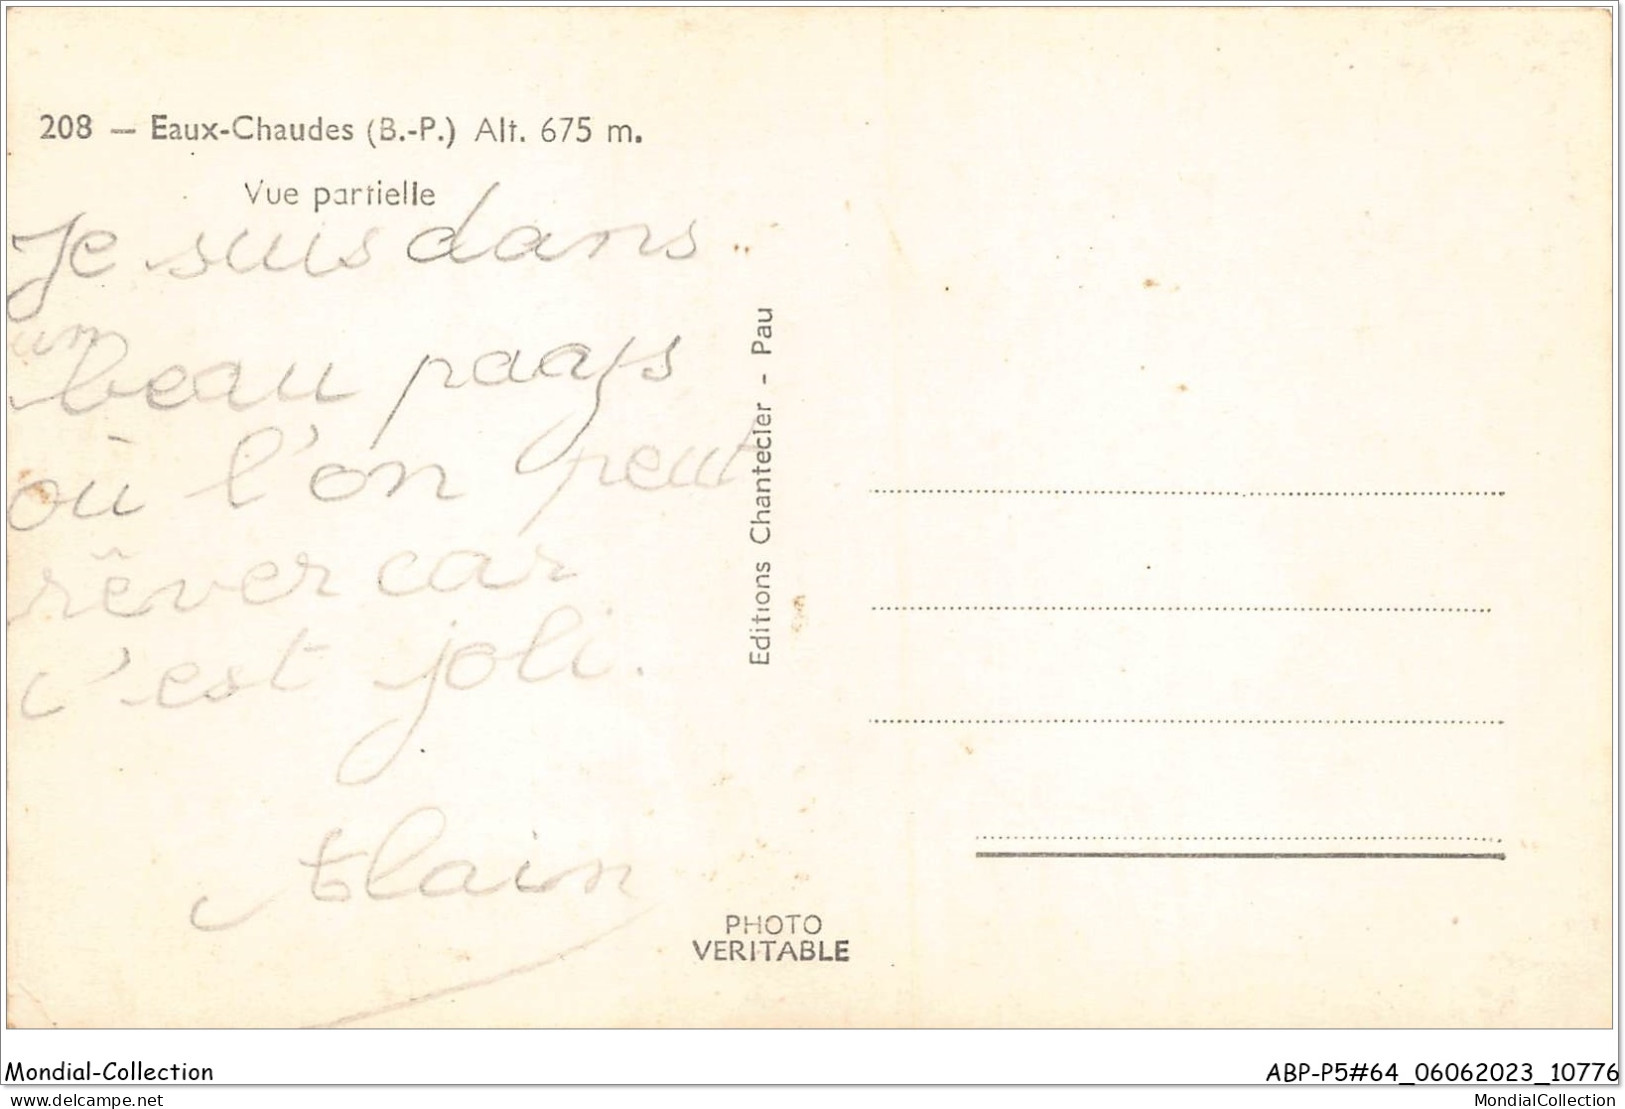 208 — Eaux-Chaudes (B.-P.) Alt. 675 m.
Vue partielle
Je suis dans
un
beau paays
où l'on peut
rêver car
c'est joli.
Alain
Editions Chantecler - Pau
PHOTO
VERITABLE
Mondial-Collection
ABP-P5#64_06062023_10776
delcampe.net
MondialCollection